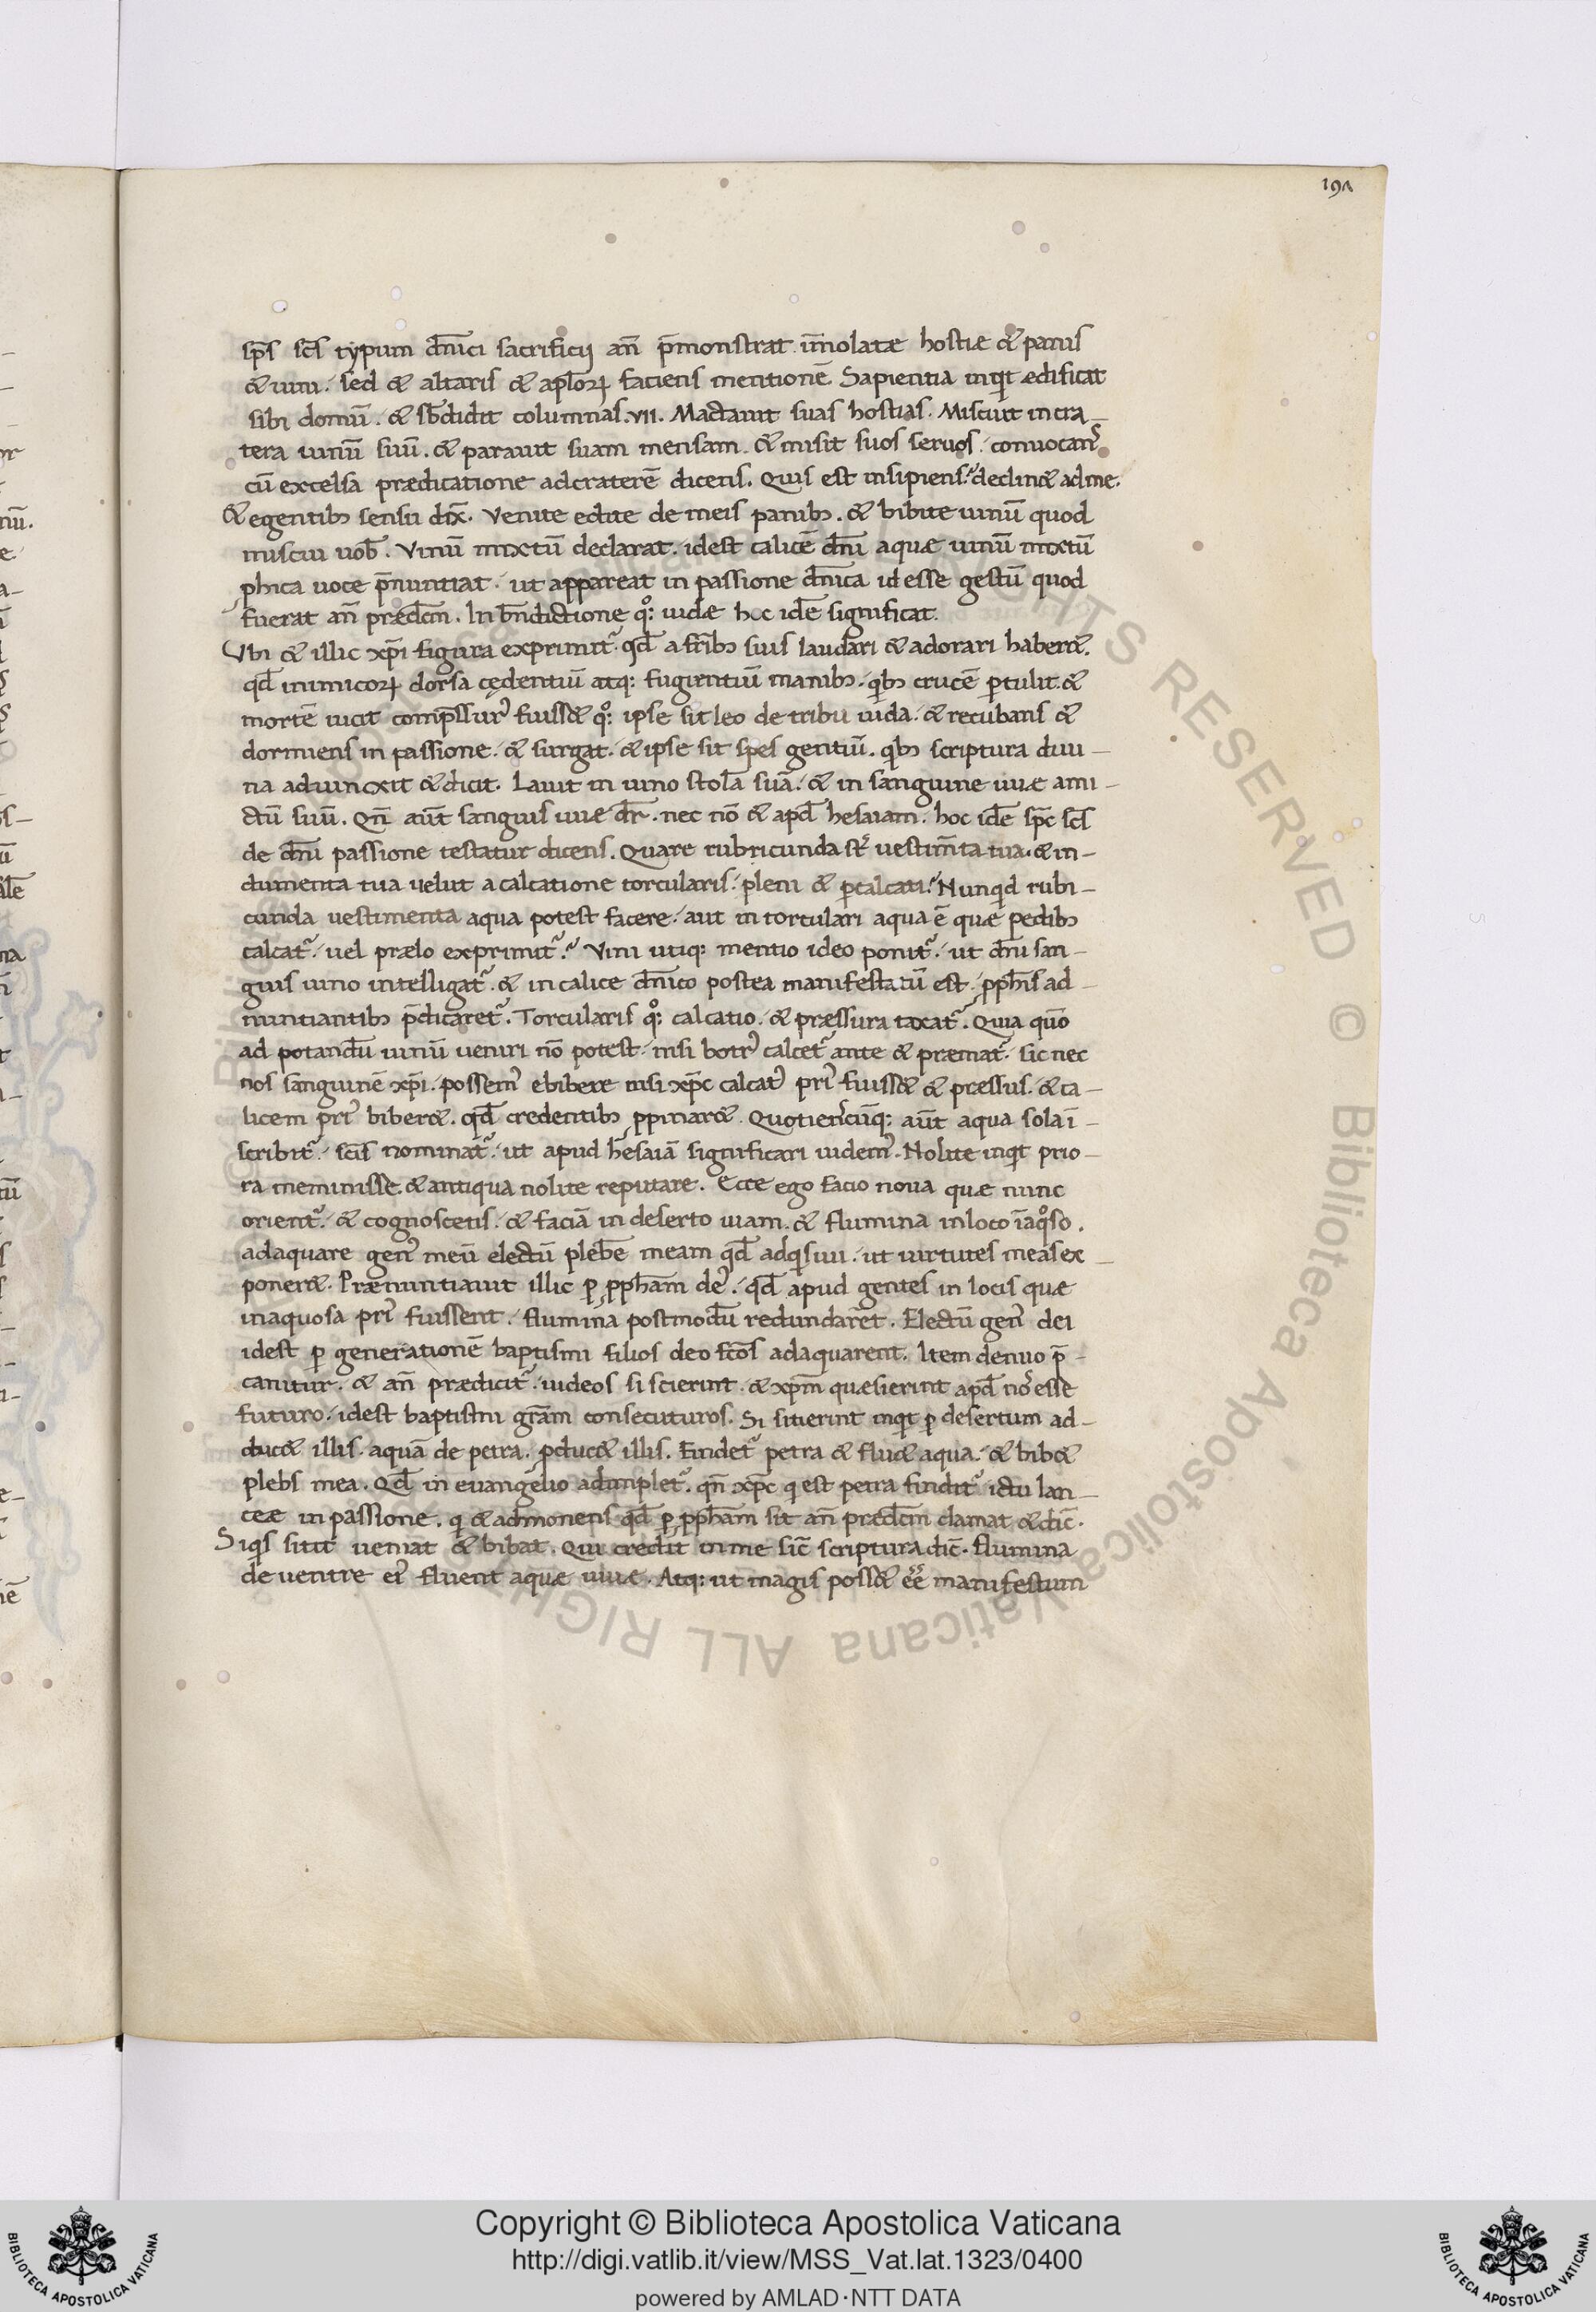 191
sp̄s sc̄s typum dn̄ici sacrificij an̄ p̄monstrat. im̄olatæ hostiæ & panis
& uini. sed & altaris & apl̄oꝝ faciens mentionē. Sapientia inqͥt ædificat
sibi domū. & sb̄didit columnas. VII. Mactauit suas hostias. Miscuit in cra-
tera uinū suū. & parauit suam mensam. & misit suos seruos. conuocanꝰ
cū excelsa prædicatione ad craterē dicens. Quis est insipiens? declin& ad me.
& egentibꝫ sensu dix̄. Venite edite de meis panibꝫ. & bibite uinū quod
miscui uob̄. Vinū mixtū declarat. idest calicē dn̄i aquæ uinū mixtū
ꝓphica uoce p̄nuntiat. ut appareat in passione dn̄ica id esse gestū quod
fuerat an̄ prædc̄m. In bn̄dictione qͦꝫ iudæ hoc idē significat.
Vbi & illic xp̄i figura exprimit᷑. qd̄ a frīb̄ꝫ suis laudari & adorari haber&.
qd̄ inimicoꝝ dorsa cędentiū atqꝫ fugientiū manibꝫ. qͥbꝫ crucē ꝑtulit. &
mortē uicit comp̄ssurꝰ fuiss& qͦꝫ ipse sit leo de tribu iuda. & recubans &
dormiens in passione. & surgat. & ipse sit spes gentiū. qͥbꝫ scriptura diui-
na adiunxit & dicit. Lauit in uino stolā suā. & in sanguine uuæ ami-
ctū suū. Qn̄ aūt sanguis uuæ dr̄. nec nō & apd̄ hesaiam. hoc idē sp̄c sc̄s
de dn̄i passione testatur dicens. Quare rubricunda st᷑ uestim̄ta tua. & in-
dumenta tua uelut a calcatione torcularis. pleni & ꝑcalcati? Nunqͥd rubi-
cunda uestimenta aqua potest facere. aut in torculari aqua ē quæ pedibꝫ
calcat᷑. uel prælo exprimit᷑? Vini utiqꝫ mentio ideo ponit᷑. ut dn̄i san-
guis uino intelligat᷑. & in calice dn̄ico postea manifestatū est. ꝓph̄is ad-
nuntiantibꝫ p̄dicaret᷑. Torcularis qͦꝫ calcatio. & præssura taxat᷑. Quia quō
ad potandū uinū ueniri nō potest. nisi botrꝰ calcet᷑ ante & præmat᷑. sic nec
nos sanguinē xp̄i. possemꝰ ebibere nisi xp̄c calcatꝰ priꝰ fuiss& & præssus. & ca-
licem priꝰ biber&. qd̄ credentibꝫ ꝓpinar&. Quotienscūqꝫ aūt aqua sola ī
scribit᷑. sc̄is nominat᷑. ut apud hesaiā significari uidemꝰ. Nolite inqͥt prio-
ra meminisse. & antiqua nolite reputare. Ecce ego facio noua quæ nunc
orient᷑. & cognoscetis. & faciā in deserto uiam. & flumina in loco īaqͦso.
adaquare genꝰ meū electū plebē meam qd̄ adqͥsiui. ut uirtutes meas ex-
poner&. Prænuntiauit illic ꝑ ꝓph̄am dꝰ. qd̄ apud gentes in locis quæ
inaquosa priꝰ fuissent. flumina postmodū redundarēt. Electū genꝰ dei
idest ꝑ generationē baptismi filios deo fc̄os adaquarent. Item denuo p̄-
canitur. & an̄ prædicit᷑. iudeos si scierint. & xpm̄ quæsierint apd̄ nōs esse
futuro. idest baptismi gr̄am consecuturos. Si sitierint inqͥt ꝑ desertum ad-
duc& illis. aquā de petra. ꝓduc& illis. Findet᷑ petra & flu& aqua. & bib&
plebs mea. Qd̄ in euangelio adimplet᷑. qn̄ xp̄c qͥ est petra findit᷑ ictu lan-
ceæ in passione. qͥ & admonens qd̄ ꝑ ꝓph̄am sit an̄ prædc̄m clamat & dic̄.
Siqͥs sitit ueniat & bibat. Qui credit in me sic̄ scriptura dic̄. flumina
de uentre eiꝰ fluent aquæ uiuæ. Atqꝫ ut magis poss& eē᷑ manifestum
© Biblioteca Apostolica Vaticana ALL RIGHTS RESERVED © Biblioteca Apostolica Vaticana ALL RIGHTS
Copyright © Biblioteca Apostolica Vaticana
http://digi.vatlib.it/view/MSS_Vat.lat.1323/0400
powered by AMLAD·NTT DATA
BIBLIOTECA APOSTOLICA VATICANA
BIBLIOTECA APOSTOLICA VATICANA